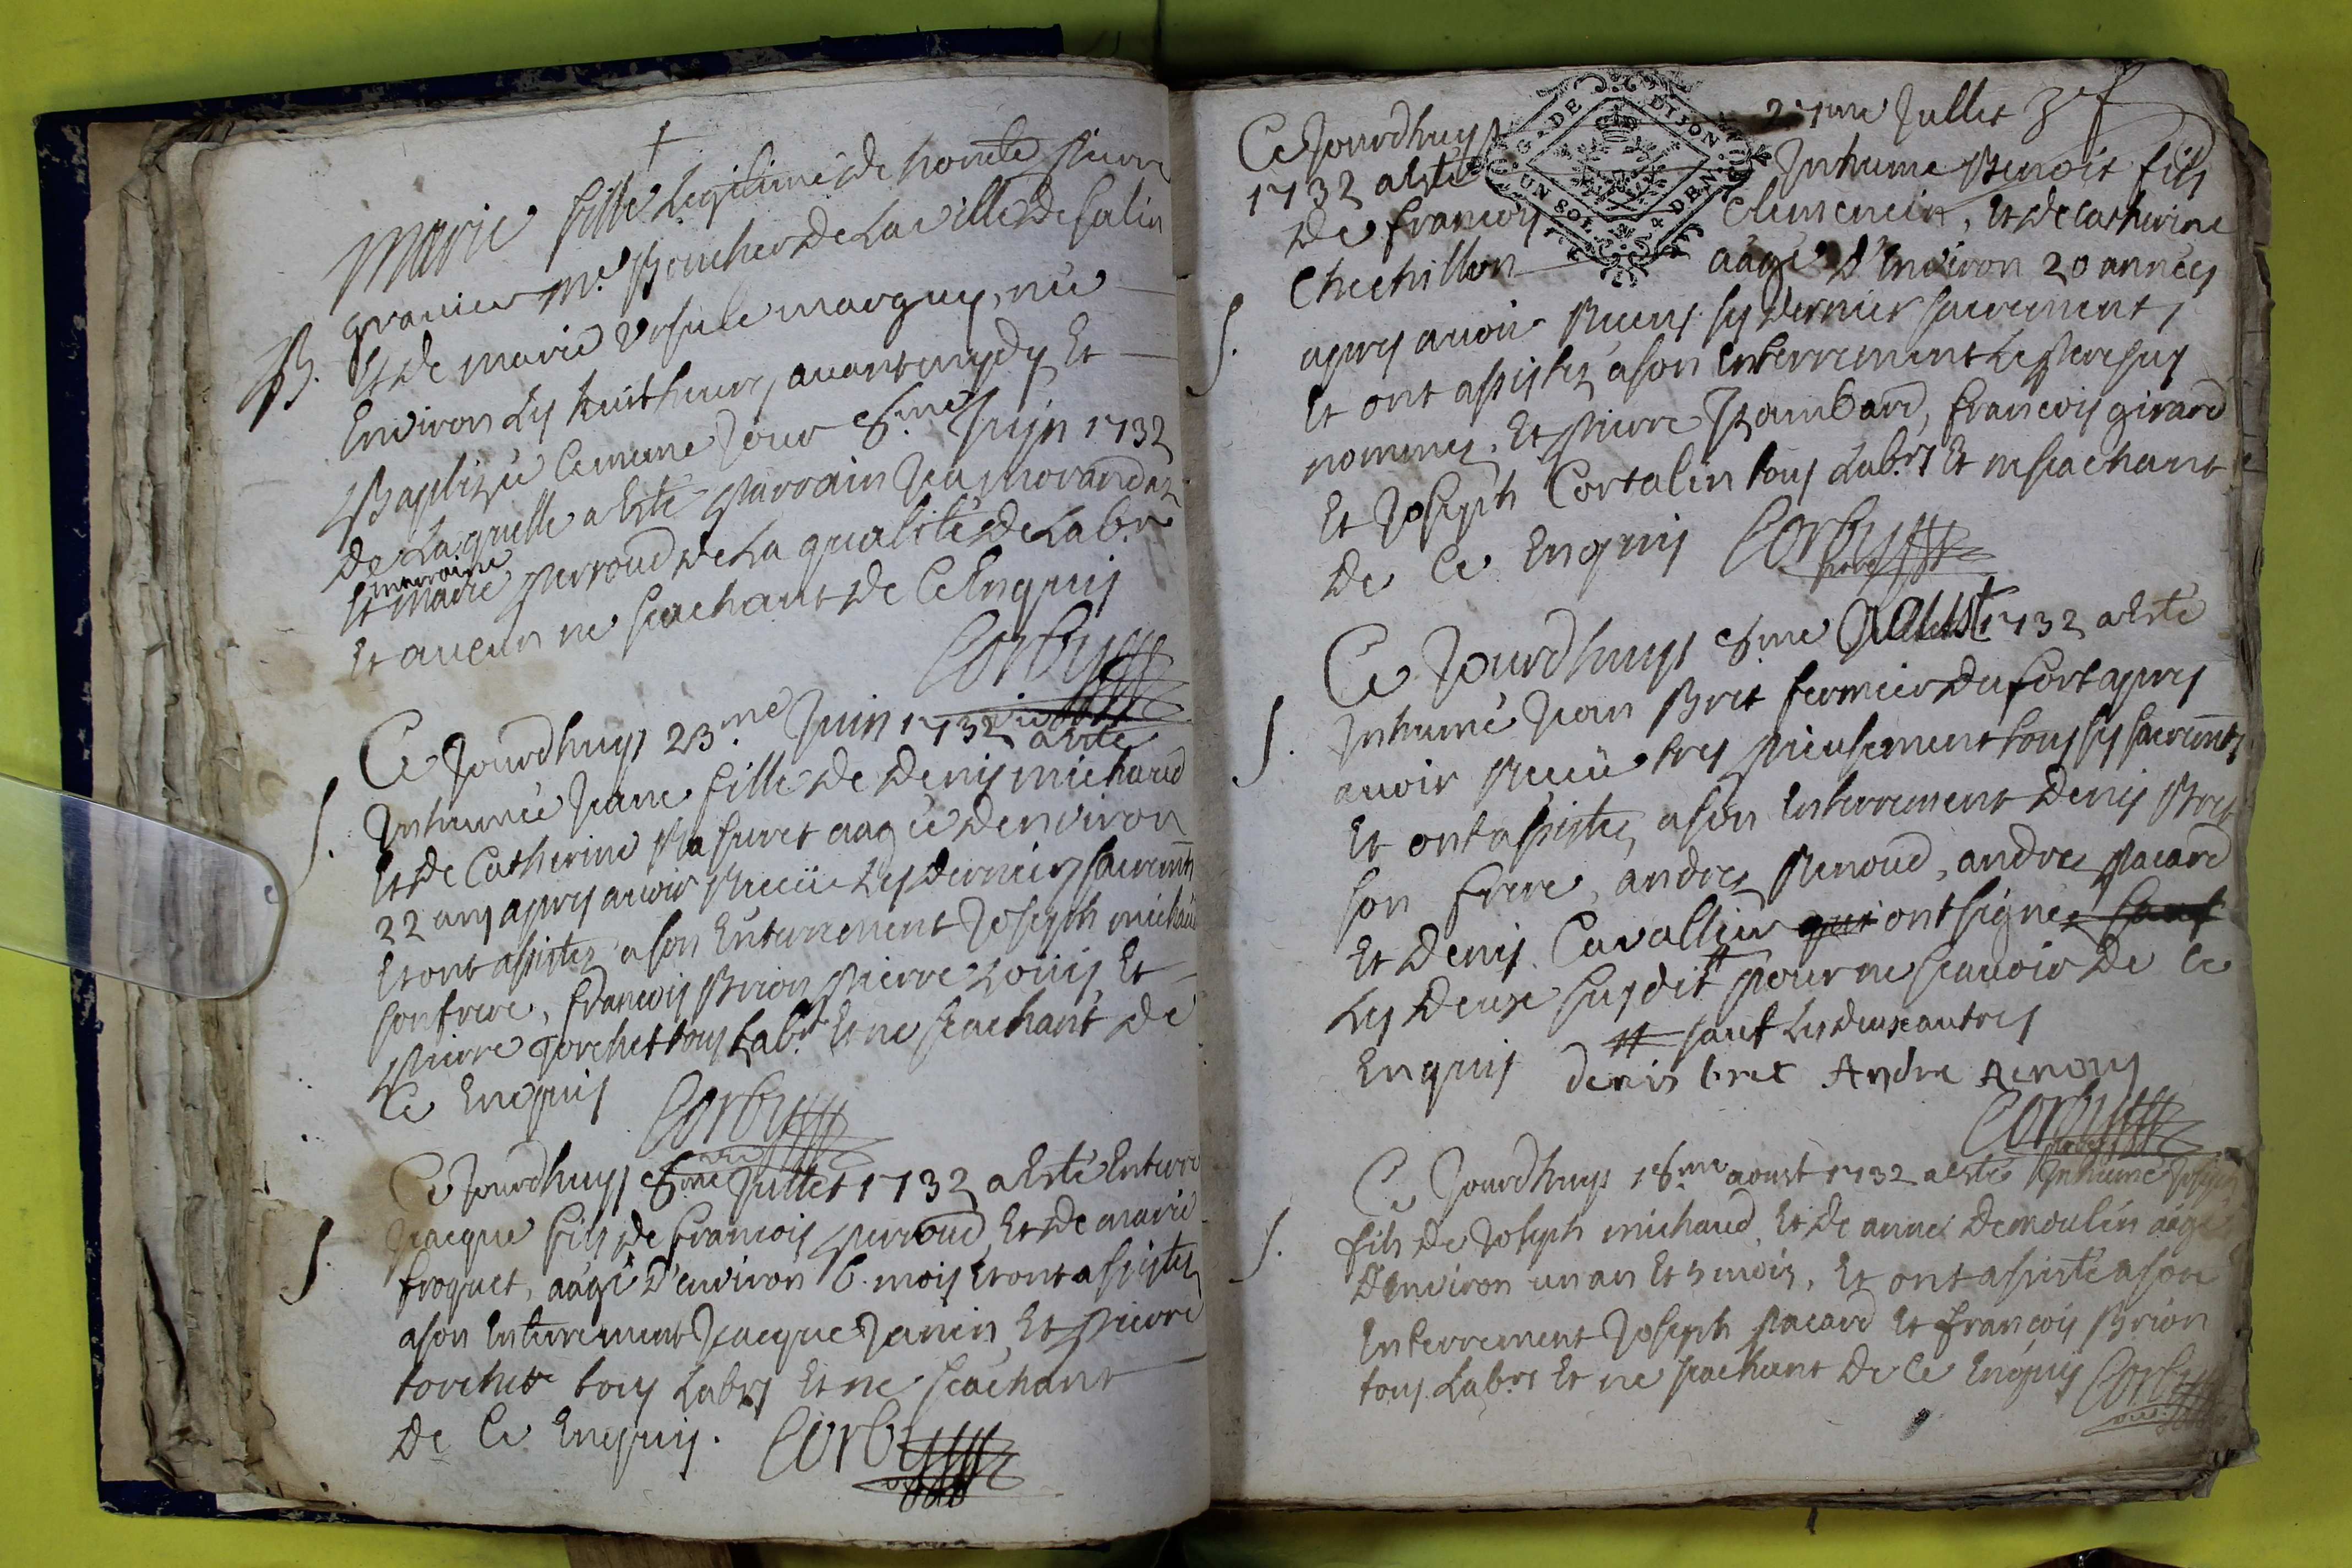 †
Marie fille Legitime de honneste pierre
granier me Boucher de La ville de Salin
B. Et de marie Ursule marguey, née
Environ Les huit heures, avant mydy Et
Baptizée Le meme Jour 8.me Juijn 1732
De Laquelle a Esté parrain Jea morandez
marraine
Et marie perroud de La qualité de Labr.
Et aucun ne scachant de Ce Enquis
Corby
Ce Jourdhuys 23.me Juin 1732 a Esté
S. Inhumée Jeane fille de Denis michaud
Et de Catherine Masuret aagée denviron
22 ans apres avoir Receüe Les derniers sacremts
Et ont assistez a son Enterrement Joseph michaud
son frere, francois Brion pierre Loüis, Et
pierre Torchet tous Labr. Et ne scachant de
Ce Enquis Corby
Ce Jourdhuys 8.me Jullet 1732 a Esté Enterré
S. Jacque fils de francois perroud, Et de marie
froquet, aagé d'environ 6. mois Et ont assistez
a son Enterrement Jacque Janin, Et pierre
torchet tous Labrs Et ne scachant
De Ce Enquis. Corby
Ce Jourdhuys 27me Jullet
G. DE DIJON
UN SOL 4 DEN.
1732 a Esté Inhumé Benoit fils
De francois Clemencin, Et de Catherine
Chechillon aagé d'Environ 20 années
S. apres avoir Receus ses dernier sacrement,
Et ont assistez a son Enterrement Le pere sus
nommez, Et pierre Rambard, francois girard
Et Joseph Cortalin tous Labrs Et ne scachant
De Ce Enquis Corby
Ce Jourdhuys 8me Aoust 1732 a Esté
S. Inhumé Jean Bret fermier du fort apres
avoir Receü tres pieusement tous ses sacremnts
Et ont assistez a son Enterrement Denis Bret
son frere, andrez Renoud, andrez pacard
Et Denis Cavallier qui ont signéz sauf
Les deux susdit pour ne scavoir de Ce
# sauf Les deux autres
Enquis denis bret Andre Renous
Corby
Ce Jourdhuys 18.me aoust 1732 a Esté Inhumé Joseph
S. fils de Joseph michaud, Et de anne Demoulin aagé
D'Environ un an Et 3 mois, Et ont assisté a son
Enterrement Joseph pacard Et francois Brion
tous Labrs Et ne scachant de Ce Enquis Corby